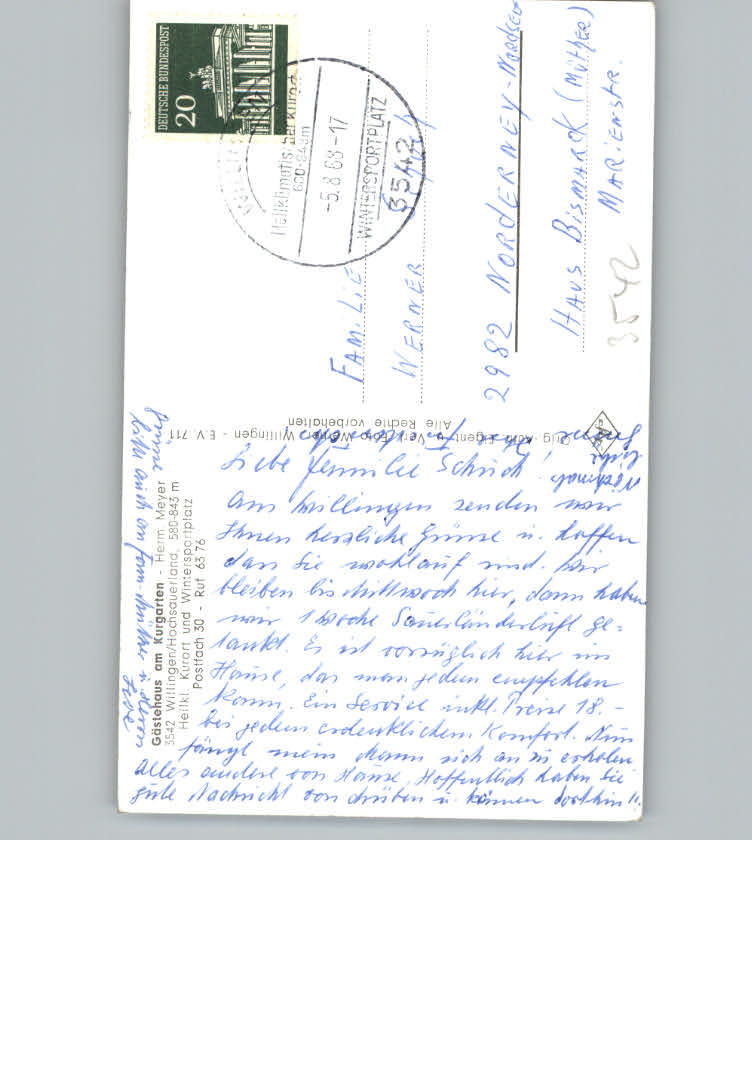 DEUTSCHE BUNDESPOST
20
Heilklimatischer Kurort
600-843m
-5.8.68-17
WINTERSPORTPLATZ
3542
FAMILIE
WERNER
2982 NORDERNEY-Nordsee
HAUS BISMARCK (MÜTHER)
MARIENSTR.
3542
Alle Rechte vorbehalten
Orig.- Eigent. u. Verl. Foto Willingen - E.V. 711
Gästehaus am Kurgarten - Herm. Meyer
3542 Willingen/Hochsauerland, 580-843 m
Heilkl. Kurort und Wintersportplatz
Postfach 30 - Ruf 63 76
Liebe Familie Schuch!
Aus Willingen senden wir
Ihnen herzliche Grüsse u. hoffen
das Sie wohlauf sind. Wir
bleiben bis Mittwoch hier, dann haben
wir 1 Woche Sauerländerluft ge-
tankt. Es ist vorzüglich hier im
Hause, das man jedem empfehlen
kann. Ein Service inkl. Preise 18.-
bei jedem erdenklichem Komfort. Nun
fängt mein Mann sich an zu erholen
Alles andere von Hause. Hoffentlich haben Sie
gute Nachricht von drüben u. können dorthin!!
Nochmals
liebe
Grüsse
bitte auch an Fam. Müther u. deren